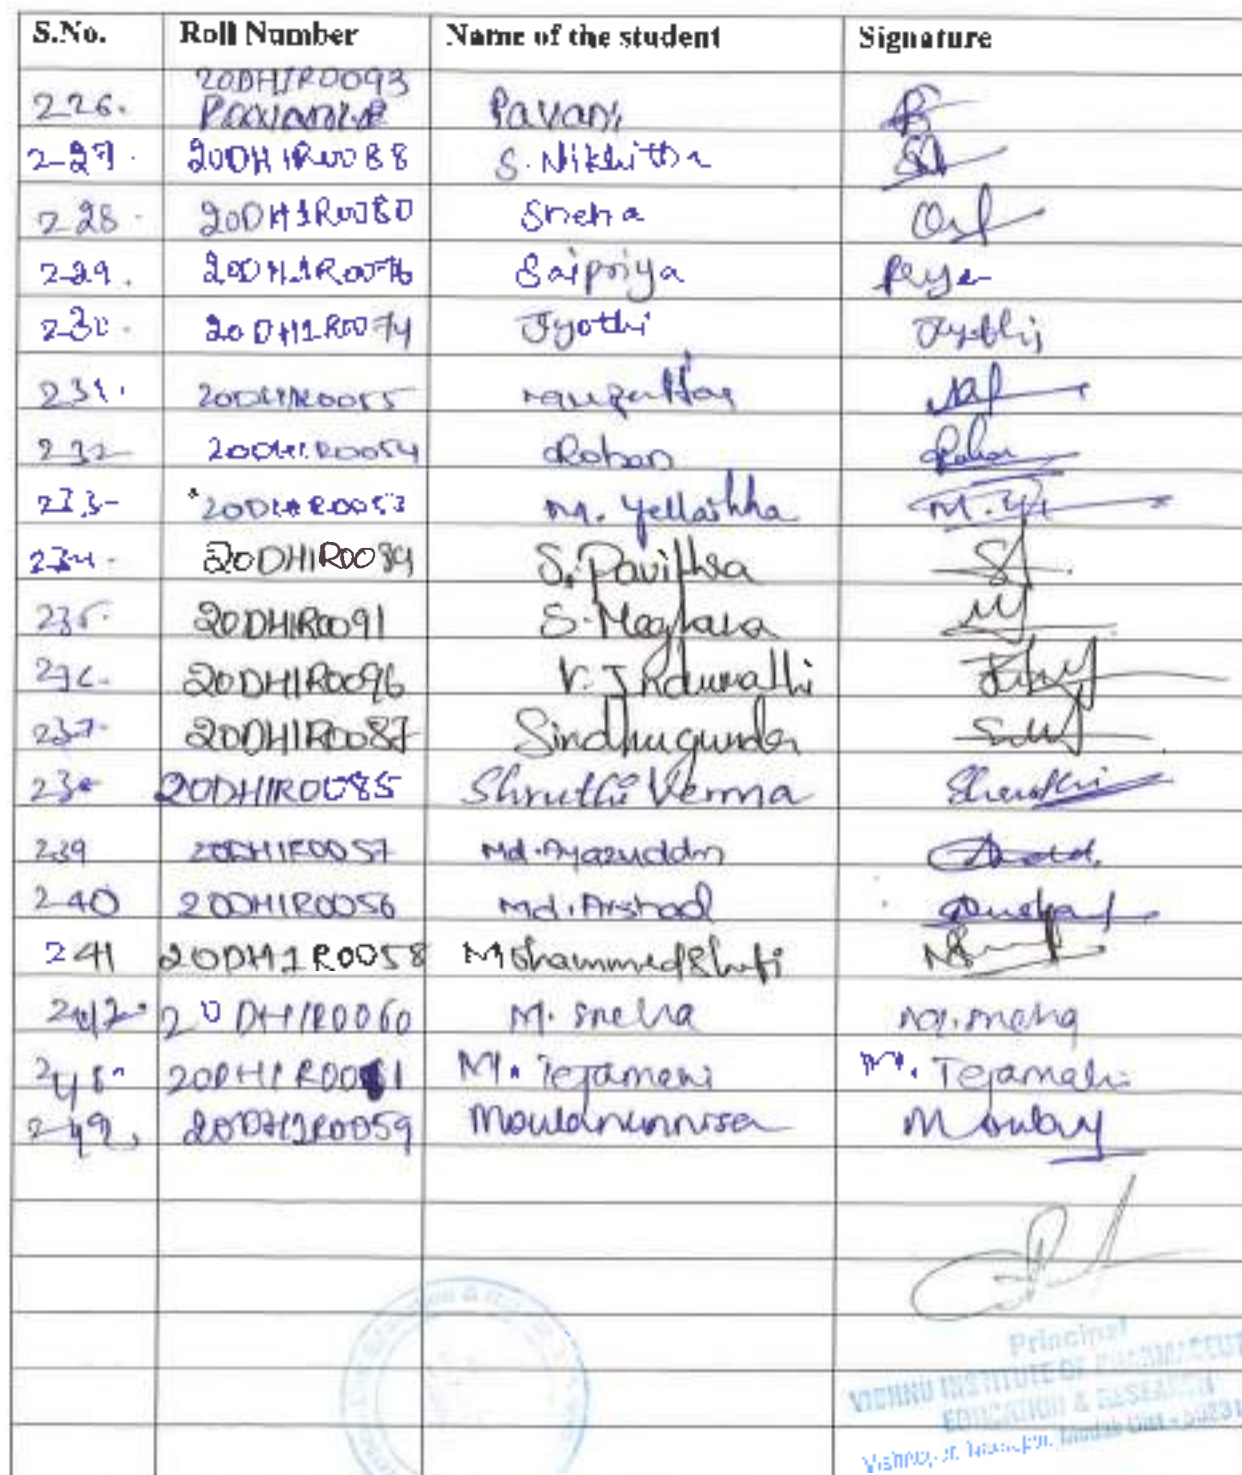 S.No. Roll Number Name of the student Signature
20DH1R0093
226. Pavani
2-27. 20DH1R0088 S. Nikhitha
228. 20DH1R0080 Sneha
2-29. 20DH1R0076 Saipriya Priya
2-30. 20DH1R0074 Jyothi Jyothi
231. 20DH1R0055
232 20DH1R0054 Rohan Rohan
233- 20DH1R0053 M. Yellaikha M. Y
234. 20DH1R0089 S. Pavithra
235. 20DH1R0091 S. Meghana
236. 20DH1R0096 V. Indumathi
237. 20DH1R0087 Sindhugunda
238 20DH1R0085 Shruthi Verma Shruthi
239 20DH1R0057 Md. Ayazuddin
240 20DH1R0056 Md. Arshad
241 20DH1R0058 Mohammed Shafi
242. 20DH1R0060 M. Sneha M. Sneha
248. 20DH1R0061 M. Tejamani M. Tejamani
249. 20DH1R0059 Moulanunnisa
Principal
VISHNU INSTITUTE OF PHARMACEUT
EDUCATION & RESEARCH
Medak Dist - 50231